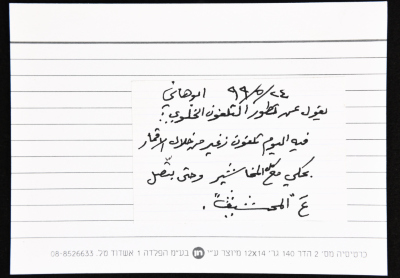 ٩٩/٥/٢٤ ابوهاني
يقول عن تطور التلفون الخلوي:
فيه اليوم تلفون زغير من خلال الاقمار
بحكي مع كل المغاشير وحتى بتصل
عَ "المحششين".
כרטיסיה מס' 2 הדר 140 גר' 12X14 מיוצר ע"י חן בע"מ הפלדה 1 אשדוד טל. 08-8526633